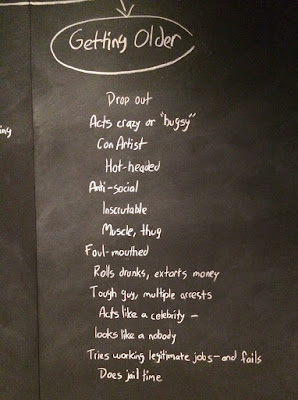 Getting Older
Drop out
Acts crazy or "bugsy"
Con Artist
Hot-headed
Anti-social
Inscrutable
Muscle, thug
Foul-mouthed
Rolls drunks, extorts money
Tough guy, multiple arrests
Acts like a celebrity –
looks like a nobody
Tries working legitimate jobs – and fails
Does jail time
ing